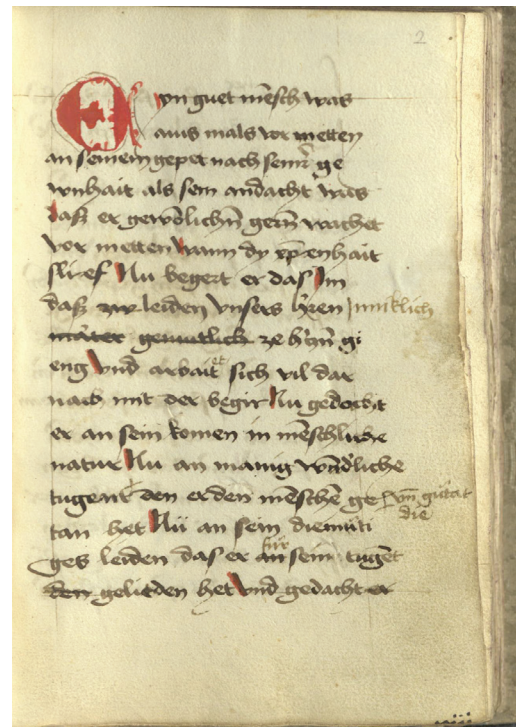 2
Eyn guet mēsch was
ains mals vor metten
an seinem gepet nach seinr̄ ge
wnhait als sein andacht was
daß er gewōlichn̄ gern̄ wachet
vor metten wann dy xp̄enhait
slief Nu begert er das Im
daß leiden vnsers hr̄en Inniklich
ze hrcz̄n gi
eng vnd arbait et sich vil dar
nach mit der begir Nu gedacht
er an sein komen in mēschliche
natur Nu an manig wūdliche
tugent den er den mēschē ge vn̄ gūtat
tan het Nu an sein diemüti die
ges leiden das er für sein tugēt
gelieden het vnd gedacht er